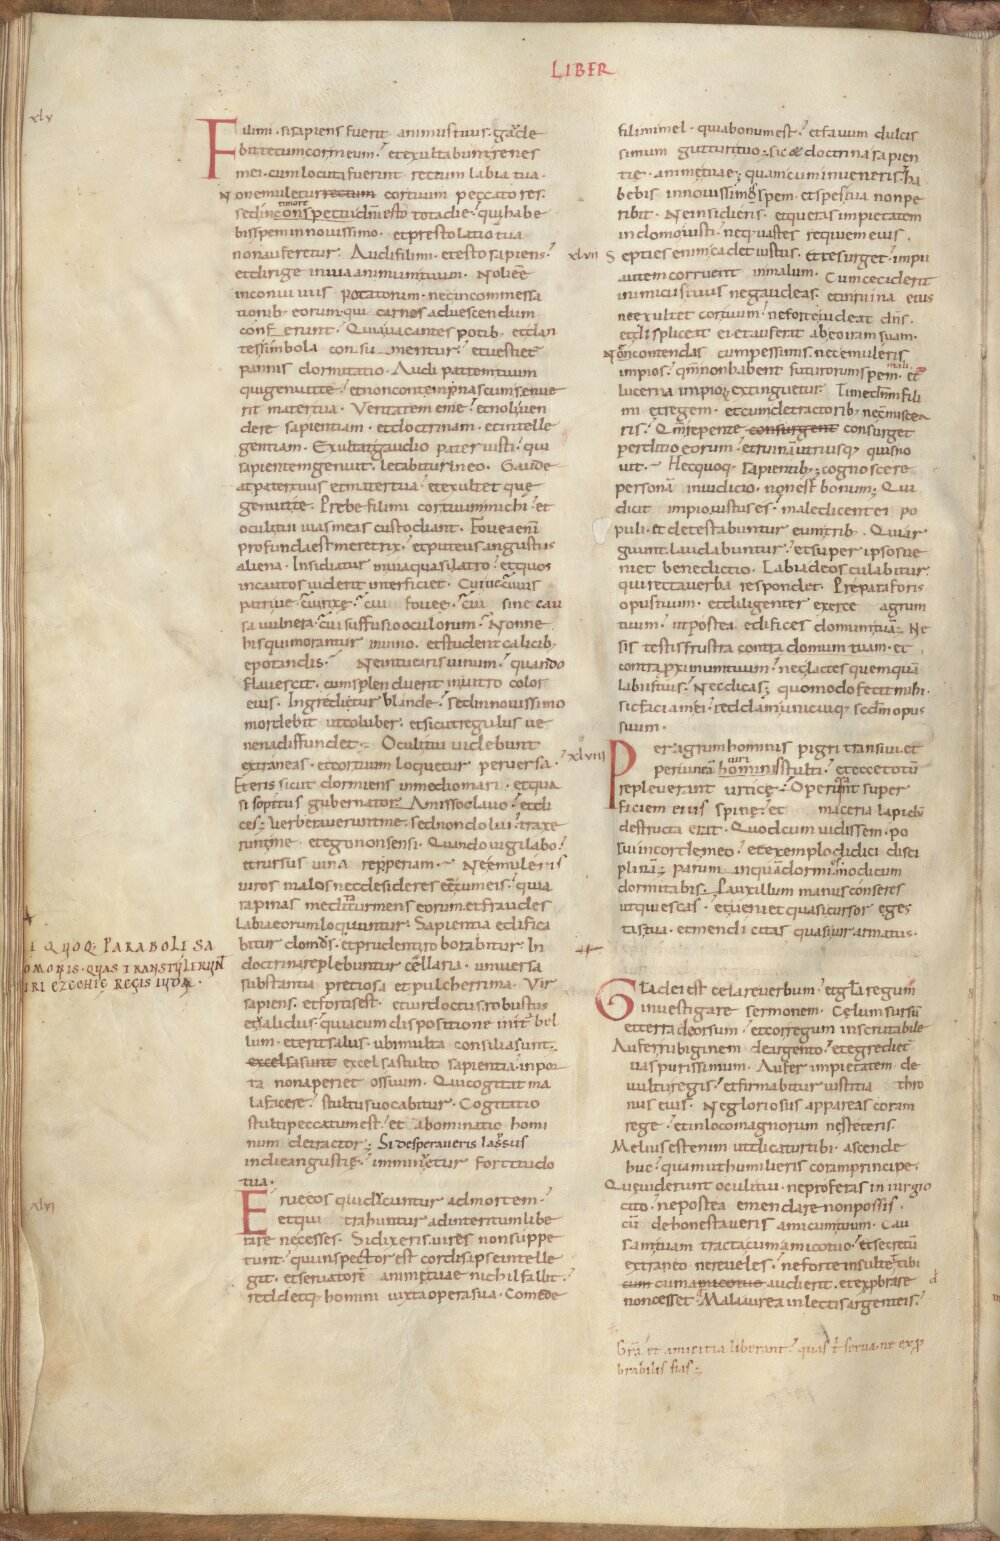 LIBER
xlv
Filimi · sisapiens fuerit animus tuus · gaude
bit tecum cor meum · et exultabunt renes
mei · cum locuta fuerint rectum labia tua ·
Non emuletur rectum cor tuum peccatores ·
sed in timore conspectu dñi esto tota die · qui habe
bis spem in novissimo · et prestolatio tua
non auferetur · Audi fili mi · et esto sapiens
et dirige in via animum tuum · Noli eẽ
in conviviis potatorum · nec in commessa
tionib; eorum · qui carnes ad vescendum
conferunt · Quia vacantes potib; et dan
tes simbola consumentur · et vestiet
pannis dormitatio · Audi patrem tuum
qui genuit te · et non contempnas cum senue
rit mater tua · Veritatem eme · et noli ven
dere sapientiam · et doctrinam · et intelle
gentiam · Exultat gaudio pater iusti · qui
sapientem genuit · letabitur in eo · Gaude
at pater tuus et mater tua · et exultet que
genuit te · Prebe fili mi cor tuum michi · et
oculi tui vias meas custodiant · Fovea enĩ
profunda est meretrix · et puteus angustus
aliena · Insidiatur in via quasi latro · et quos
incautos viderit interficiet · Cui ve · cuius
patri ve · cui rixe · cui fovee · cui sine cau
sa vulnera · cui suffusio oculorum · Nonne
his qui morantur in vino · et student calicib;
epotandis · Ne intuearis vinum · quando
flavescit · cum splenduerit in vitro color
eius · Ingreditur blande · sed in novissimo
mordebit ut coluber · et sicut regulus ve
nena diffundet · Oculi tui videbunt
extraneas · et cor tuum loquetur perversa ·
Et eris sicut dormiens in medio mari · et qua
si sopitus gubernator amisso clavo · et di
ces · Verberaverunt me · sed non dolui · traxe
runt me et ego non sensi · Quando vigilabo ·
et rursus vina repperiam · Ne emuleris
viros malos nec desideres eẽ cum eis · quia
rapinas meditatur mens eorum · et fraudes
labia eorum loquuntur · Sapientia edifica
bitur domus · et prudentia roborabitur · In
doctrina replebuntur cellaria · universa
substantia pretiosa et pulcherrima · Vir
sapiens · et fortis est · et vir doctus · robustus
et validus · quia cum dispositione init̃ bel
lum · et erit salus · ubi multa consilia sunt ·
excelsa sunt excelsa stulto sapientia · in por
ta non aperiet os suum · Qui cogitat ma
la facere · stultus vocabitur · Cogitatio
stulti peccatum est · et abominatio homi
num detractor · Si desperaveris lassus
in die angustiẽ · imminuetur fortitudo
tua ·
IQUOQ; PARABOLI SA
OMONIS · QUAS TRANSTULERUNT
IRI EZECHIE REGIS IUDA ·
xlvi
Erue eos qui ducuntur ad mortem ·
et qui trahuntur ad interitum libe
rare ne cesses · Si dixeris vires non suppe
tunt · qui inspector est cordis ipse intelle
git · et servatorẽ animẽ tuae nichil fallit ·
reddetq; homini iuxta opera sua · Comede
fili mi mel · quia bonum est · et favum dulcis
simum gutturi tuo · sic & doctrina sapien
tiẽ animẽ tuae · quam cum inveneris · ha
bebis in novissimo spem · et spes tua non pe
ribit · Ne insidieris · et queras impietatem
in domo iusti · neq; vastes requiem eius ·
xlvii
Septies enim cadet iustus · et resurget · impii
autem corruent in malum · Cum ceciderit
inimicus tuus ne gaudeas · et in ruina eius
ne exultet cor tuum · ne forte videat dñs ·
et displiceat ei · et auferat ab eo iram suam ·
Non contendas cum pessimis · nec emuleris
impios · qm̃ non habent futurorum spem mali · et
lucerna impiorum extinguetur · Time dñm fili
mi · et regem · et cum detractorib; ne com̃miscea
ris · Qm̃ repente consurgent consurget
perditio eorum · et ruinã utriusq; quis no
vit · Hec quoq; sapientib; cognoscere
personã in iudicio · non est bonum · Qui
dicit impio iustus es · maledicent ei po
puli · et detestabuntur eum trib; · Qui ar
guunt laudabuntur · et super ipsos ve
niet benedictio · Labia deosculabitur
qui recta verba respondet · Prepara foris
opus tuum · et diligenter exerce agrum
tuum · ut postea edifices domum tuã · Ne
sis testis frustra contra domum tuam · et
contra proximum tuum · nec lactes quemquã
labiis tuis · Nec dicas · quomodo fecit mihi ·
sic faciam ei · reddam unicuiq; scdm opus
suum ·
xlviii
Per agrum hominis pigri transivi · et
per vineã viri hominis stulti · et ecce totũ
repleverant urticẽ · Operuerant super
ficiem eius spinẽ · et maceria lapidũ
destructa erat · Quod cum vidissem · po
sui in corde meo · et exemplo didici disci
plinã · Parum inquã dormi modicum
dormitabis · Pauxillum manus conseres
ut quiescas · et veniet quasi cursor eges
tas tua · et mendicitas quasi vir armatus ·
Glã dei est celare verbum · et glã regum
investigare sermonem · Celum sursũ
et terra deorsum · et cor regum inscrutabile
Aufer rubiginem de argento · et egrediet̃
vas purissimum · Aufer impietatem de
vultu regis · et firmabitur iustitia thro
nus eius · Ne gloriosus appareas coram
rege · et in loco magnorum ne steteris ·
Melius est enim ut dicatur tibi · ascende
huc · quam ut humilieris coram principe ·
Que viderunt oculi tui · ne proferas in iurgio
cito · ne postea emendare non possis ·
cũ dehonestaveris amicum tuum · Cau
sam tuam tracta cum amico tuo · et secretũ
extraneo ne reveles · ne forte insultet tibi
cum cum amico tuo audierit · et exprobrare
non cesset · Mala aurea in lectis argenteis ·
Grã et amicitia liberant · quas t̃ serva · ne expro
brabilis fias ·